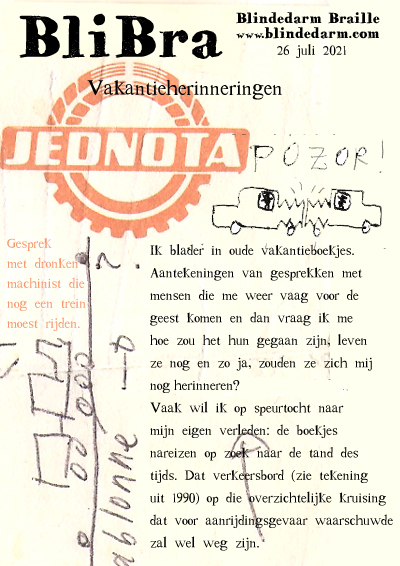 BliBra
Blindedarm Braille
www.blindedarm.com
26 juli 2021
Vakantieherinneringen
JEDNOTA
POZOR!
Gesprek
met dronken
machinist die
nog een trein
moest rijden.
Ik blader in oude vakantieboekjes.
Aantekeningen van gesprekken met
mensen die me weer vaag voor de
geest komen en dan vraag ik me
hoe zou het hun gegaan zijn, leven
ze nog en zo ja, zouden ze zich mij
nog herinneren?
Vaak wil ik op speurtocht naar
mijn eigen verleden: de boekjes
nareizen op zoek naar de tand des
tijds. Dat verkeersbord (zie tekening
uit 1990) op die overzichtelijke kruising
dat voor aanrijdingsgevaar waarschuwde
zal wel weg zijn.